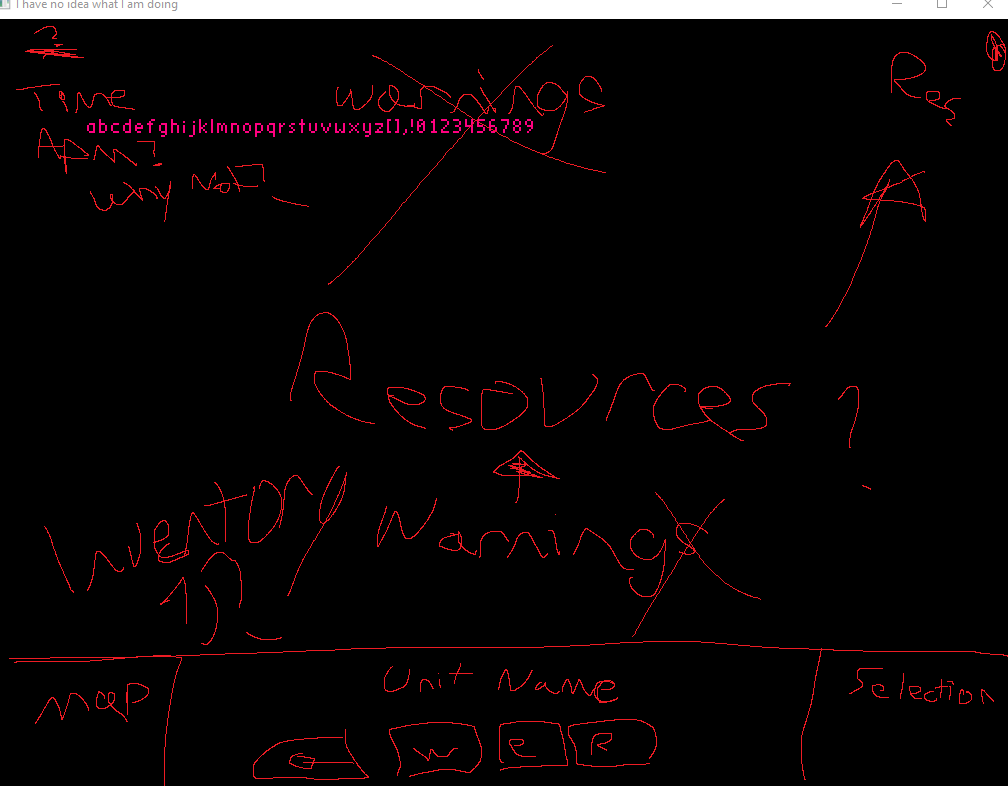 I have no idea what I am doing
?
Time
Warnings
Res
abcdefghijklmnopqrstuvwxyz[],!0123456789
APM?
Why Not?
Resources ?
Inventory
Warnings
Map
Unit Name
Selection
W E R